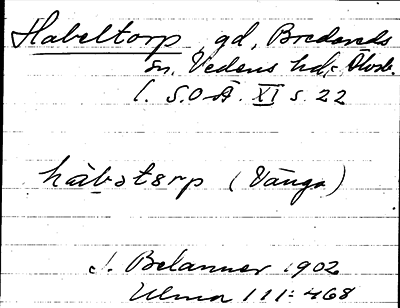 Habeltorp, gd, Bredareds
sn, Vedens hd, Älvsb.
l. S.O.Ä. XI s. 22
hàbstərp (Vånga)
J. Belanner 1902
Ulma 111:468